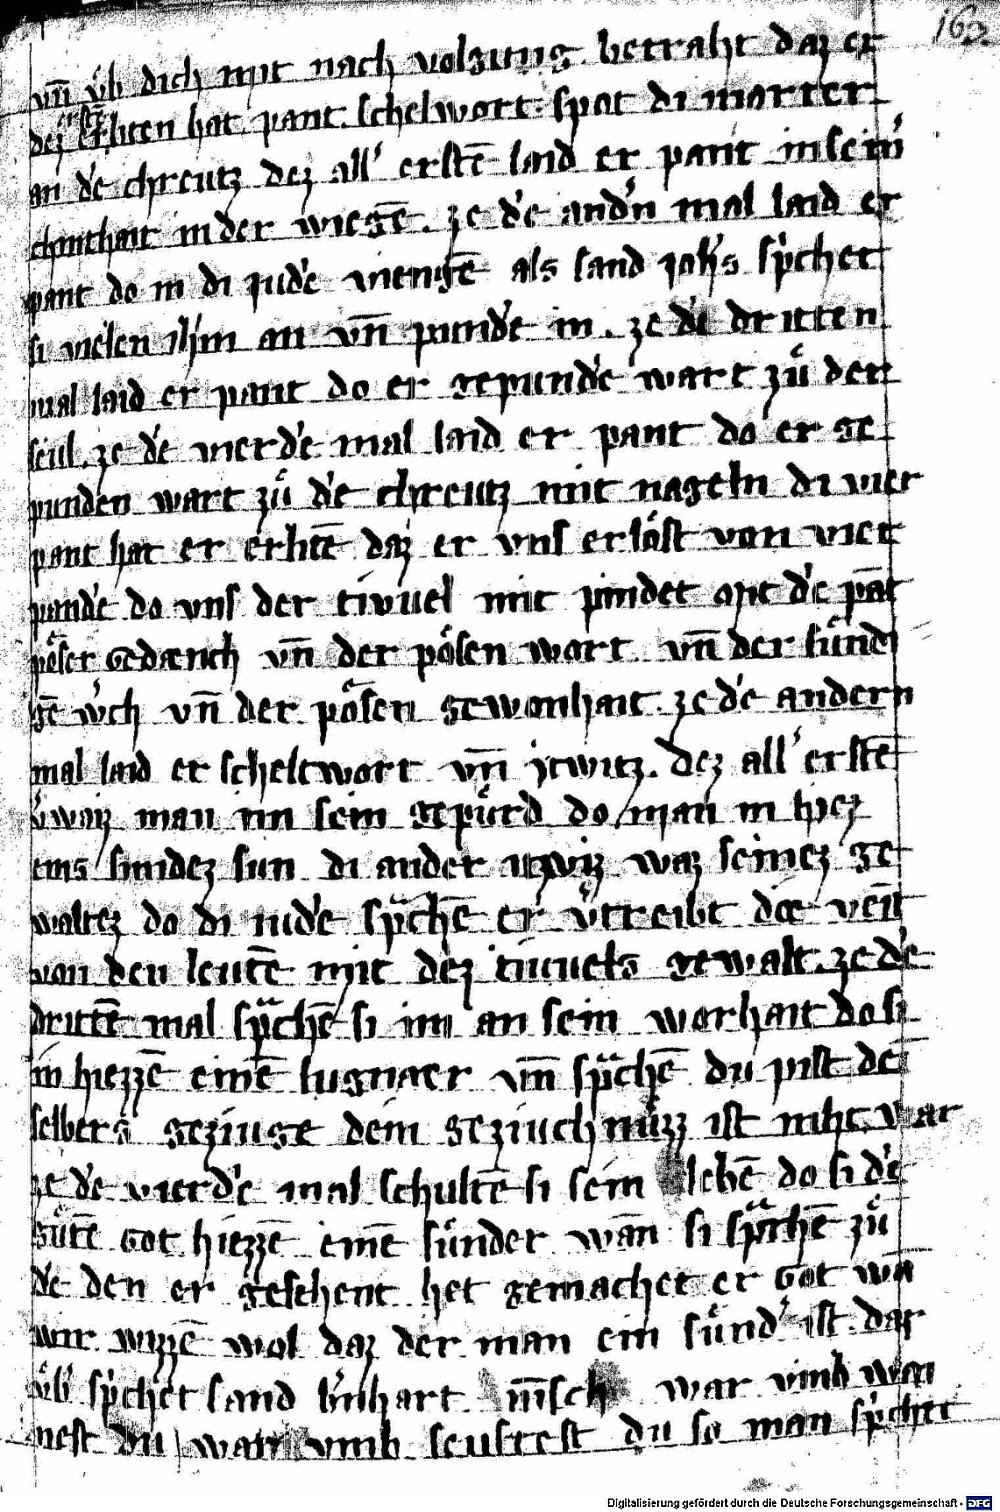 163.
vn̄ vͤb dich mit nach volgung. betraht daz er
dez ersten hat pant. schelwort. spot di marter
an dē chreutz dez all' ersten laid er pant in sein'
chinthait in der wiegē. ze dē andn̄ mal laid er
pant do in di Judē viengē als sand Johs spͥchet
si vielen Jhm an vn̄ pundē in. ze dē dritten
mal laid er pant do er gepundē wart zuͤ der
seul. ze dē vierdē mal laid er pant do er ge
punden wart zuͤ dē chreutz mit nageln di vier
pant hat er erlitē daz er vns erloͤst von vier
pandē do vns der tivuel mit pindet mit dē pāt
poͤser gedænch vn̄ der poͤsen wort vn̄ der sundi
gē w'ch vn̄ der poͤsen gewonhait. ze dē andern
mal laid er scheltwort vn̄ itwitz. dez all' erstē
v'waiz man im sein gepuͤrd do man in hiez
eins smidez sun di ander itwiz waz seinez ge
waltez do di iudē sprachē er v'treibt die veīt
von den leutē mit dez tiuuels gewalt. ze dē
drittē mal sprachē si im an sein warhait do si
in hiezzē einē lugnaer vn̄ sprachē du pist dein
selbers geziuge dein geziuchnuͤzz ist niht war
ze dē vierdē mal schultē si sein lebē do si dē
guͤtē got hiezzē einē suͤnder wān si sprachē zuͤ
dē den er gesehent het gemachet er Got wā
wir wizzē wol daz der man ein suͤnd' ist. daz
vͤb' spͥchet sand b'nhart mēsch war vmb wai
nest du war vmb seuftest du so man spͥchet
Digitalisierung gefördert durch die Deutsche Forschungsgemeinschaft - DFG